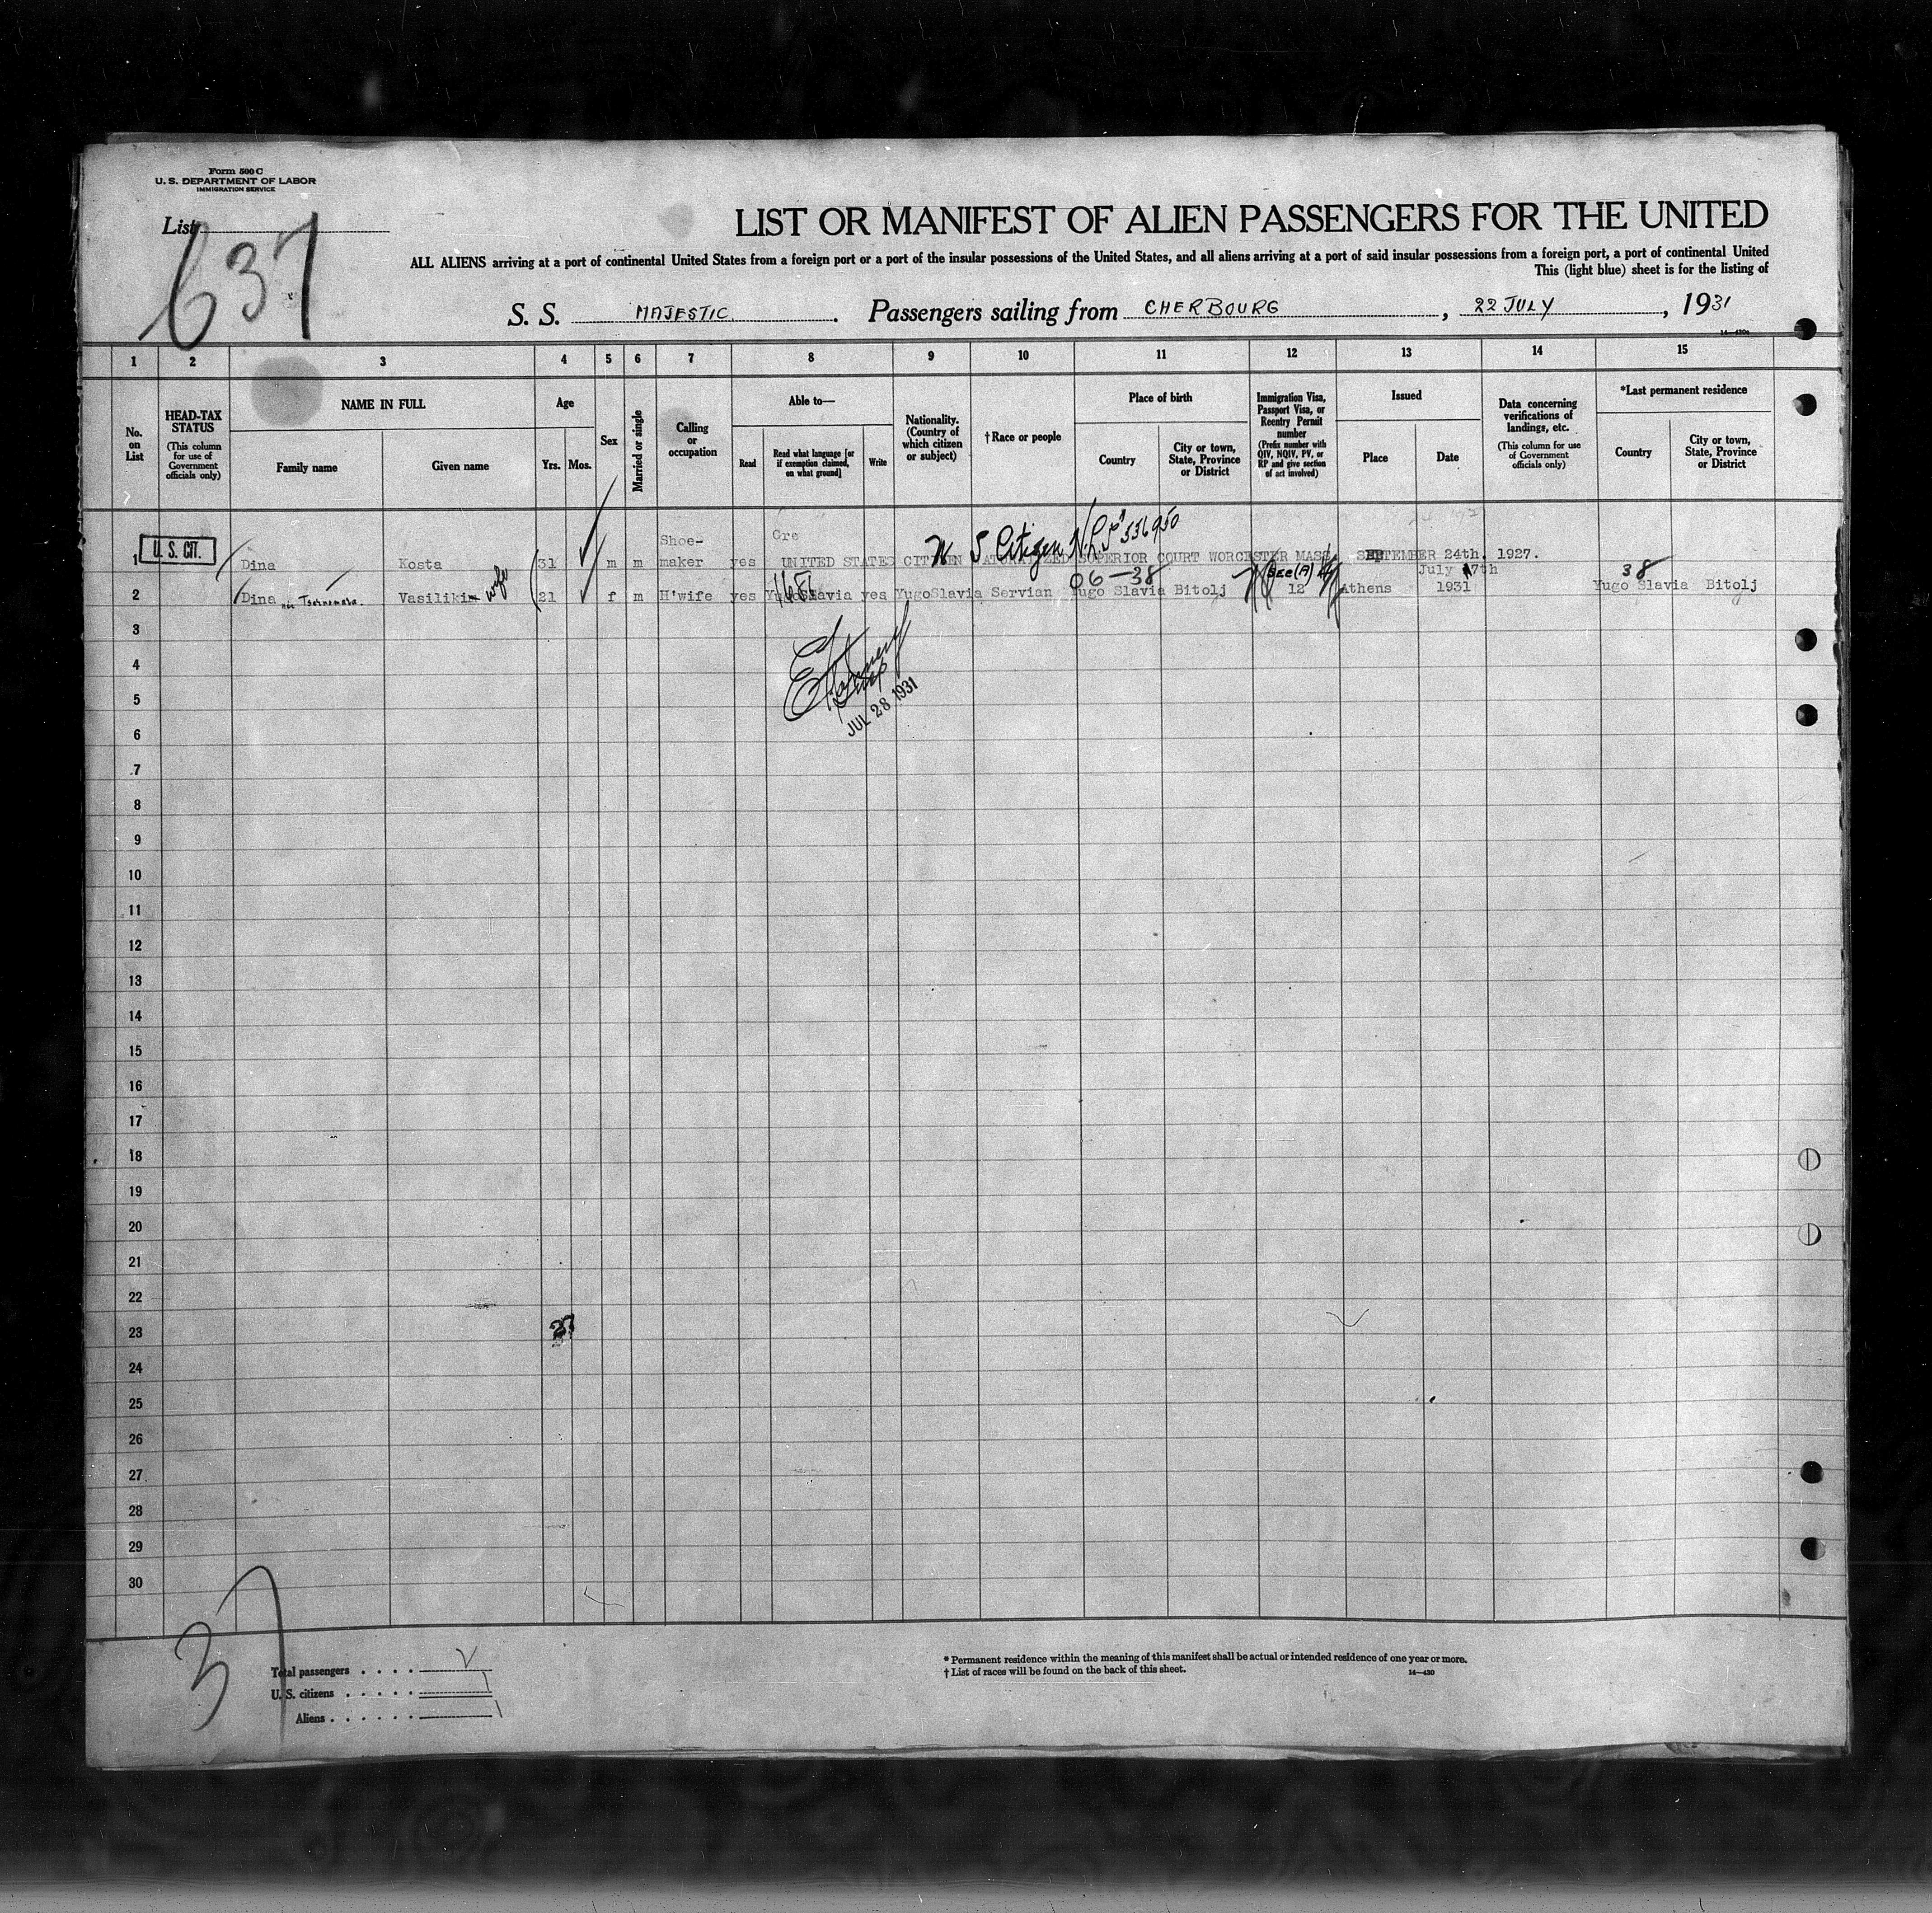 Form 500 C
U. S. DEPARTMENT OF LABOR
IMMIGRATION SERVICE
List
637
LIST OR MANIFEST OF ALIEN PASSENGERS FOR THE UNITED
ALL ALIENS arriving at a port of continental United States from a foreign port or a port of the insular possessions of the United States, and all aliens arriving at a port of said insular possessions from a foreign port, a port of continental United
This (light blue) sheet is for the listing of
S. S. MAJESTIC. Passengers sailing from CHERBOURG, 22 JULY, 1931
1 2 3 4 5 6 7 8 9 10 11 12 13 14 15
No. on List
HEAD-TAX STATUS (This column for use of Government officials only)
NAME IN FULL
Family name
Given name
Age
Yrs. Mos.
Sex
Married or single
Calling or occupation
Able to—
Read
Read what language [or if exemption claimed, on what ground]
Write
Nationality. (Country of which citizen or subject)
†Race or people
Place of birth
Country
City or town, State, Province or District
Immigration Visa, Passport Visa, or Reentry Permit number (Prefix number with QIV, NQIV, PV, or RP and give section of act involved)
Issued
Place
Date
Data concerning verifications of landings, etc. (This column for use of Government officials only)
*Last permanent residence
Country
City or town, State, Province or District
1 U. S. CIT. Dina Kosta 31 m m Shoe-maker yes Gre UNITED STATES CITIZEN NATURALIZED SUPERIOR COURT WORCESTER MASS. SEPTEMBER 24th. 1927.
S Citizen
06-38
2 Dina née Vasiliki wife 21 f m H'wife yes YugoSlavia yes YugoSlavia Servian Yugo Slavia Bitolj Sec(A) 12 Athens July 17th 1931 38 Yugo Slavia Bitolj
3
4
5
JUL 28 1931
6
7
8
9
10
11
12
13
14
15
16
17
18
19
20
21
22
23
24
25
26
27
28
29
30
37
Total passengers
U. S. citizens
Aliens
* Permanent residence within the meaning of this manifest shall be actual or intended residence of one year or more.
† List of races will be found on the back of this sheet.
14—430